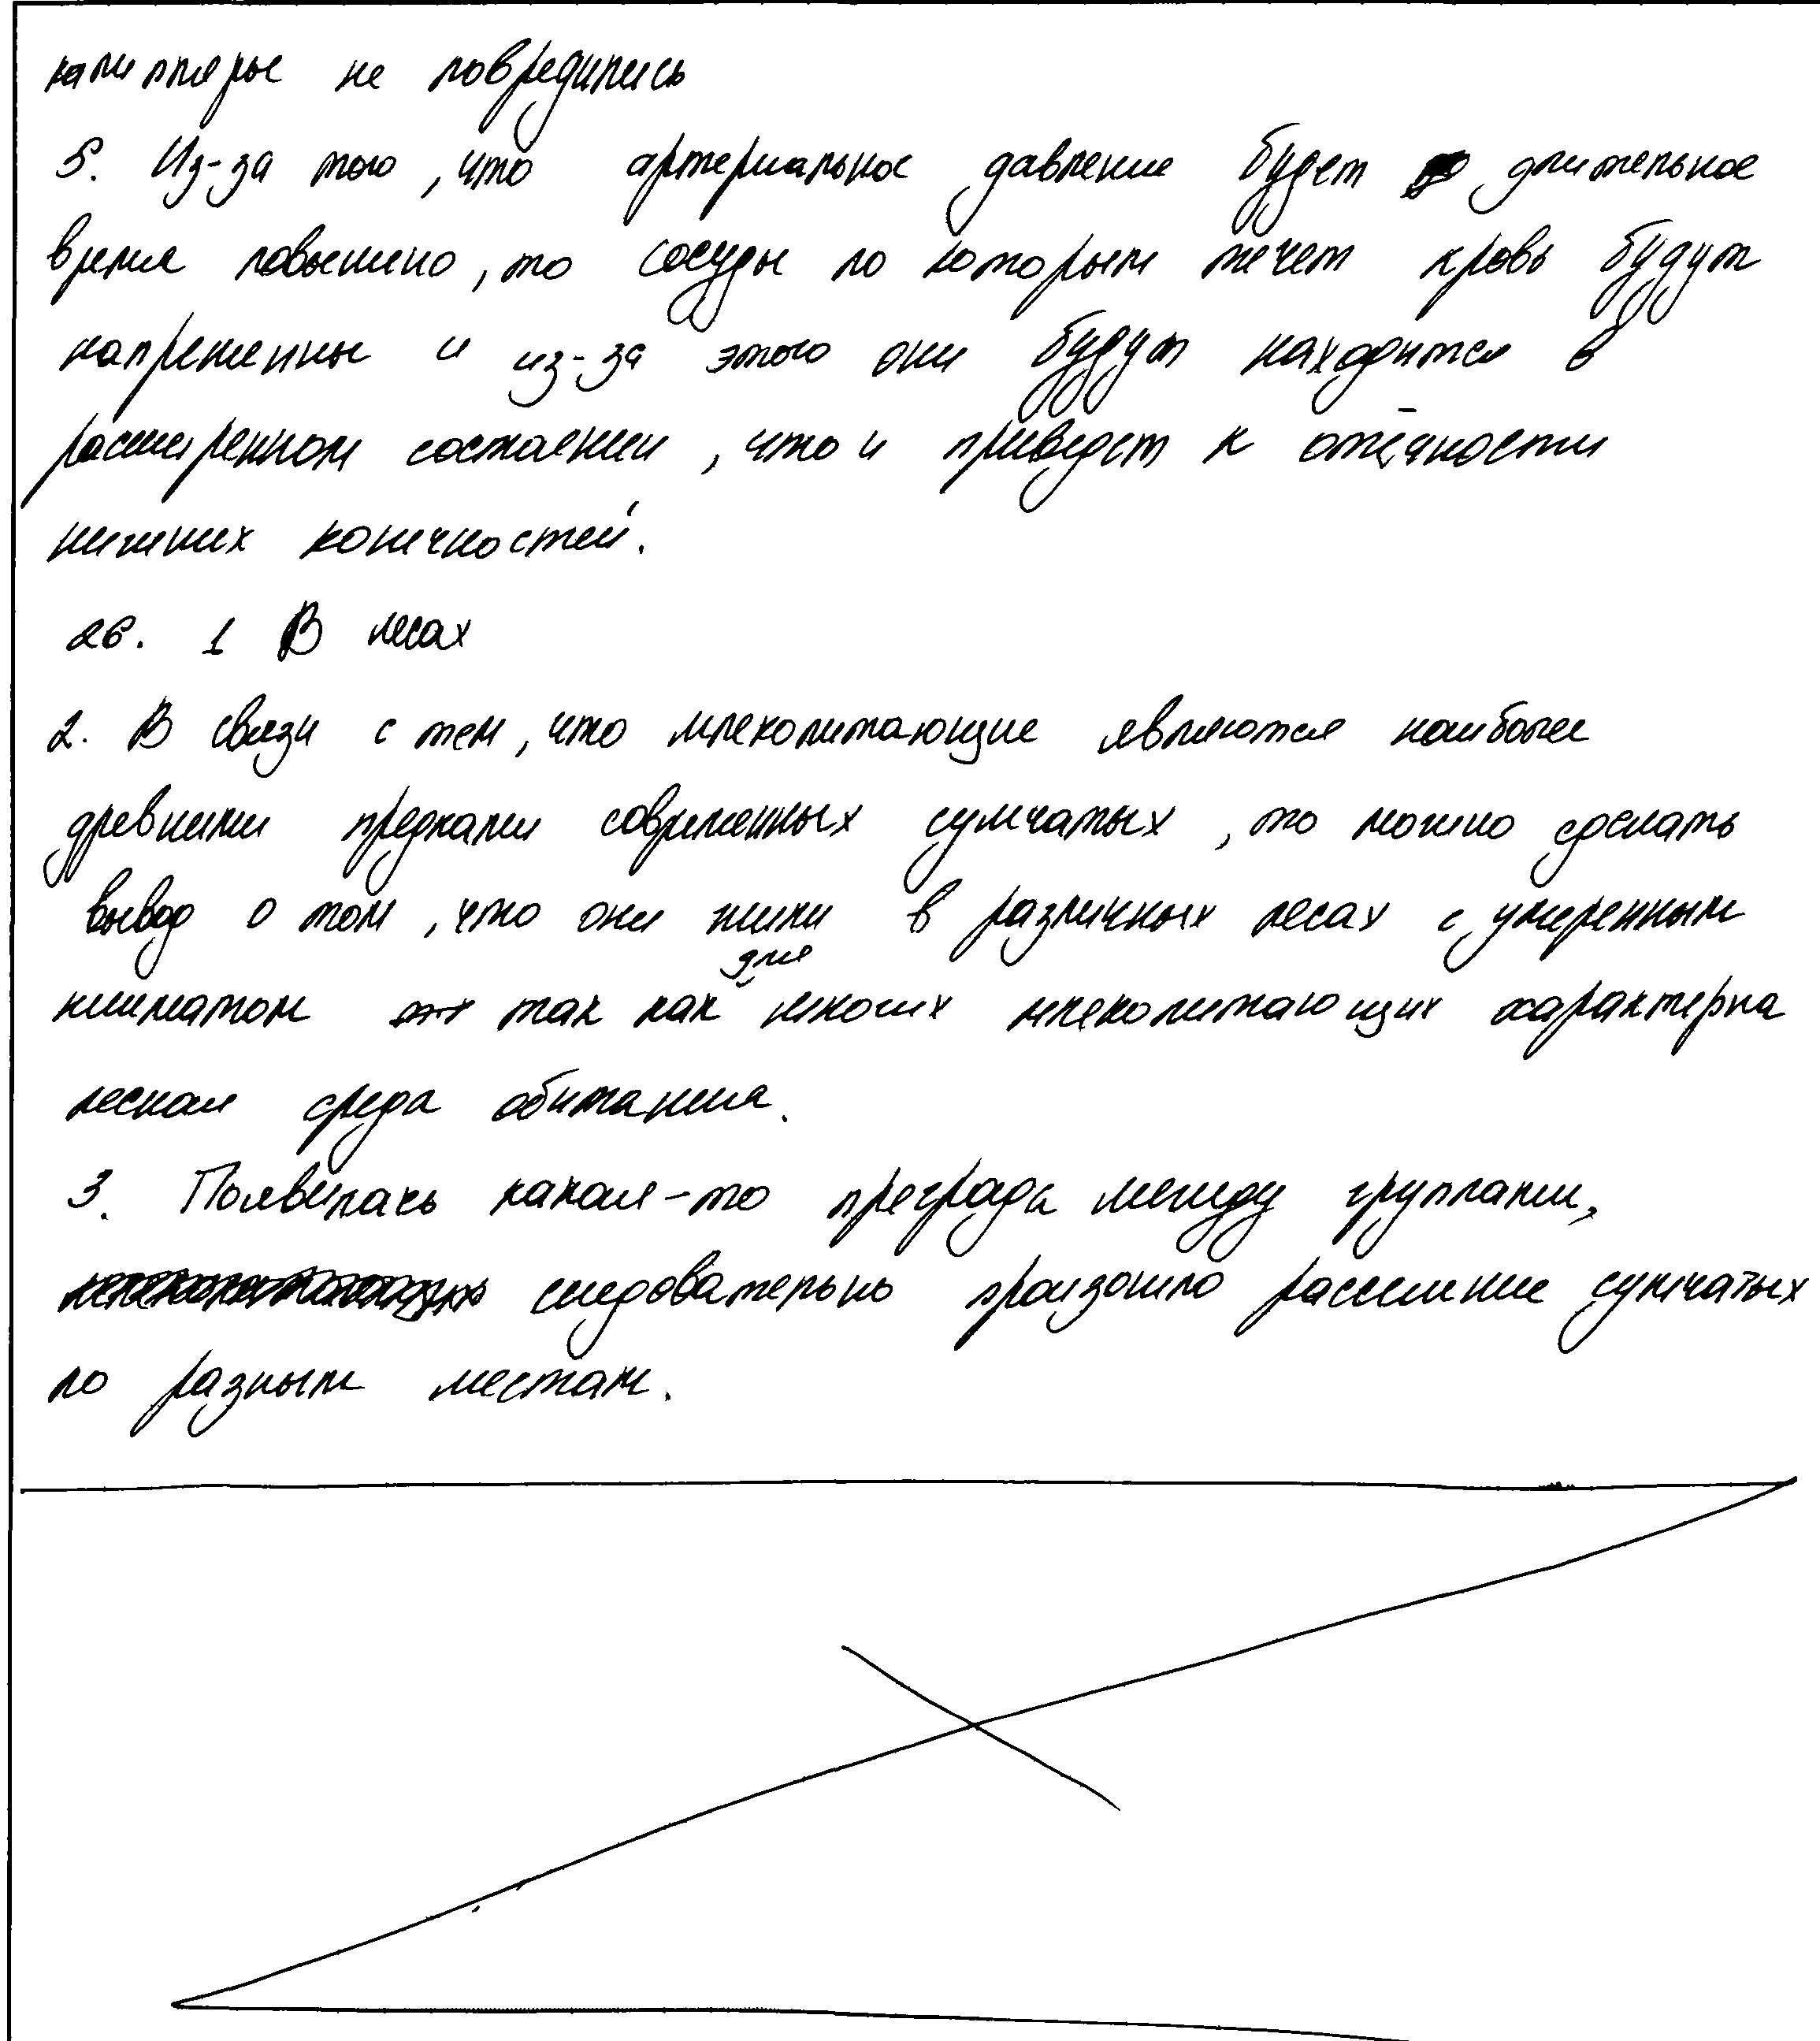 капилляры не повредились
5. Из-за того, что артериальное давление будет длительное
время повышено, то сосуды по которым течет кровь будут
напряженны и из-за этого они будут находится в
расширенном состоянии, что и приведет к отечности
нижних конечностей.
26. 1 В лесах
2. В связи с тем, что млекопитающие являются наиболее
древними предками современных сумчатых, то можно сделать
вывод о том, что они жили в различных лесах с умеренным
климатом так как для многих млекопитающих характерна
лесная среда обитания.
3. Появилась какая-то преграда между группами,
следовательно произошло расселение сумчатых
по разным местам.